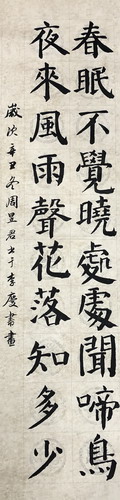 春眠不覺曉處處聞啼鳥
夜來風雨聲花落知多少
歲次辛丑冬周昱君书于李慶書畫